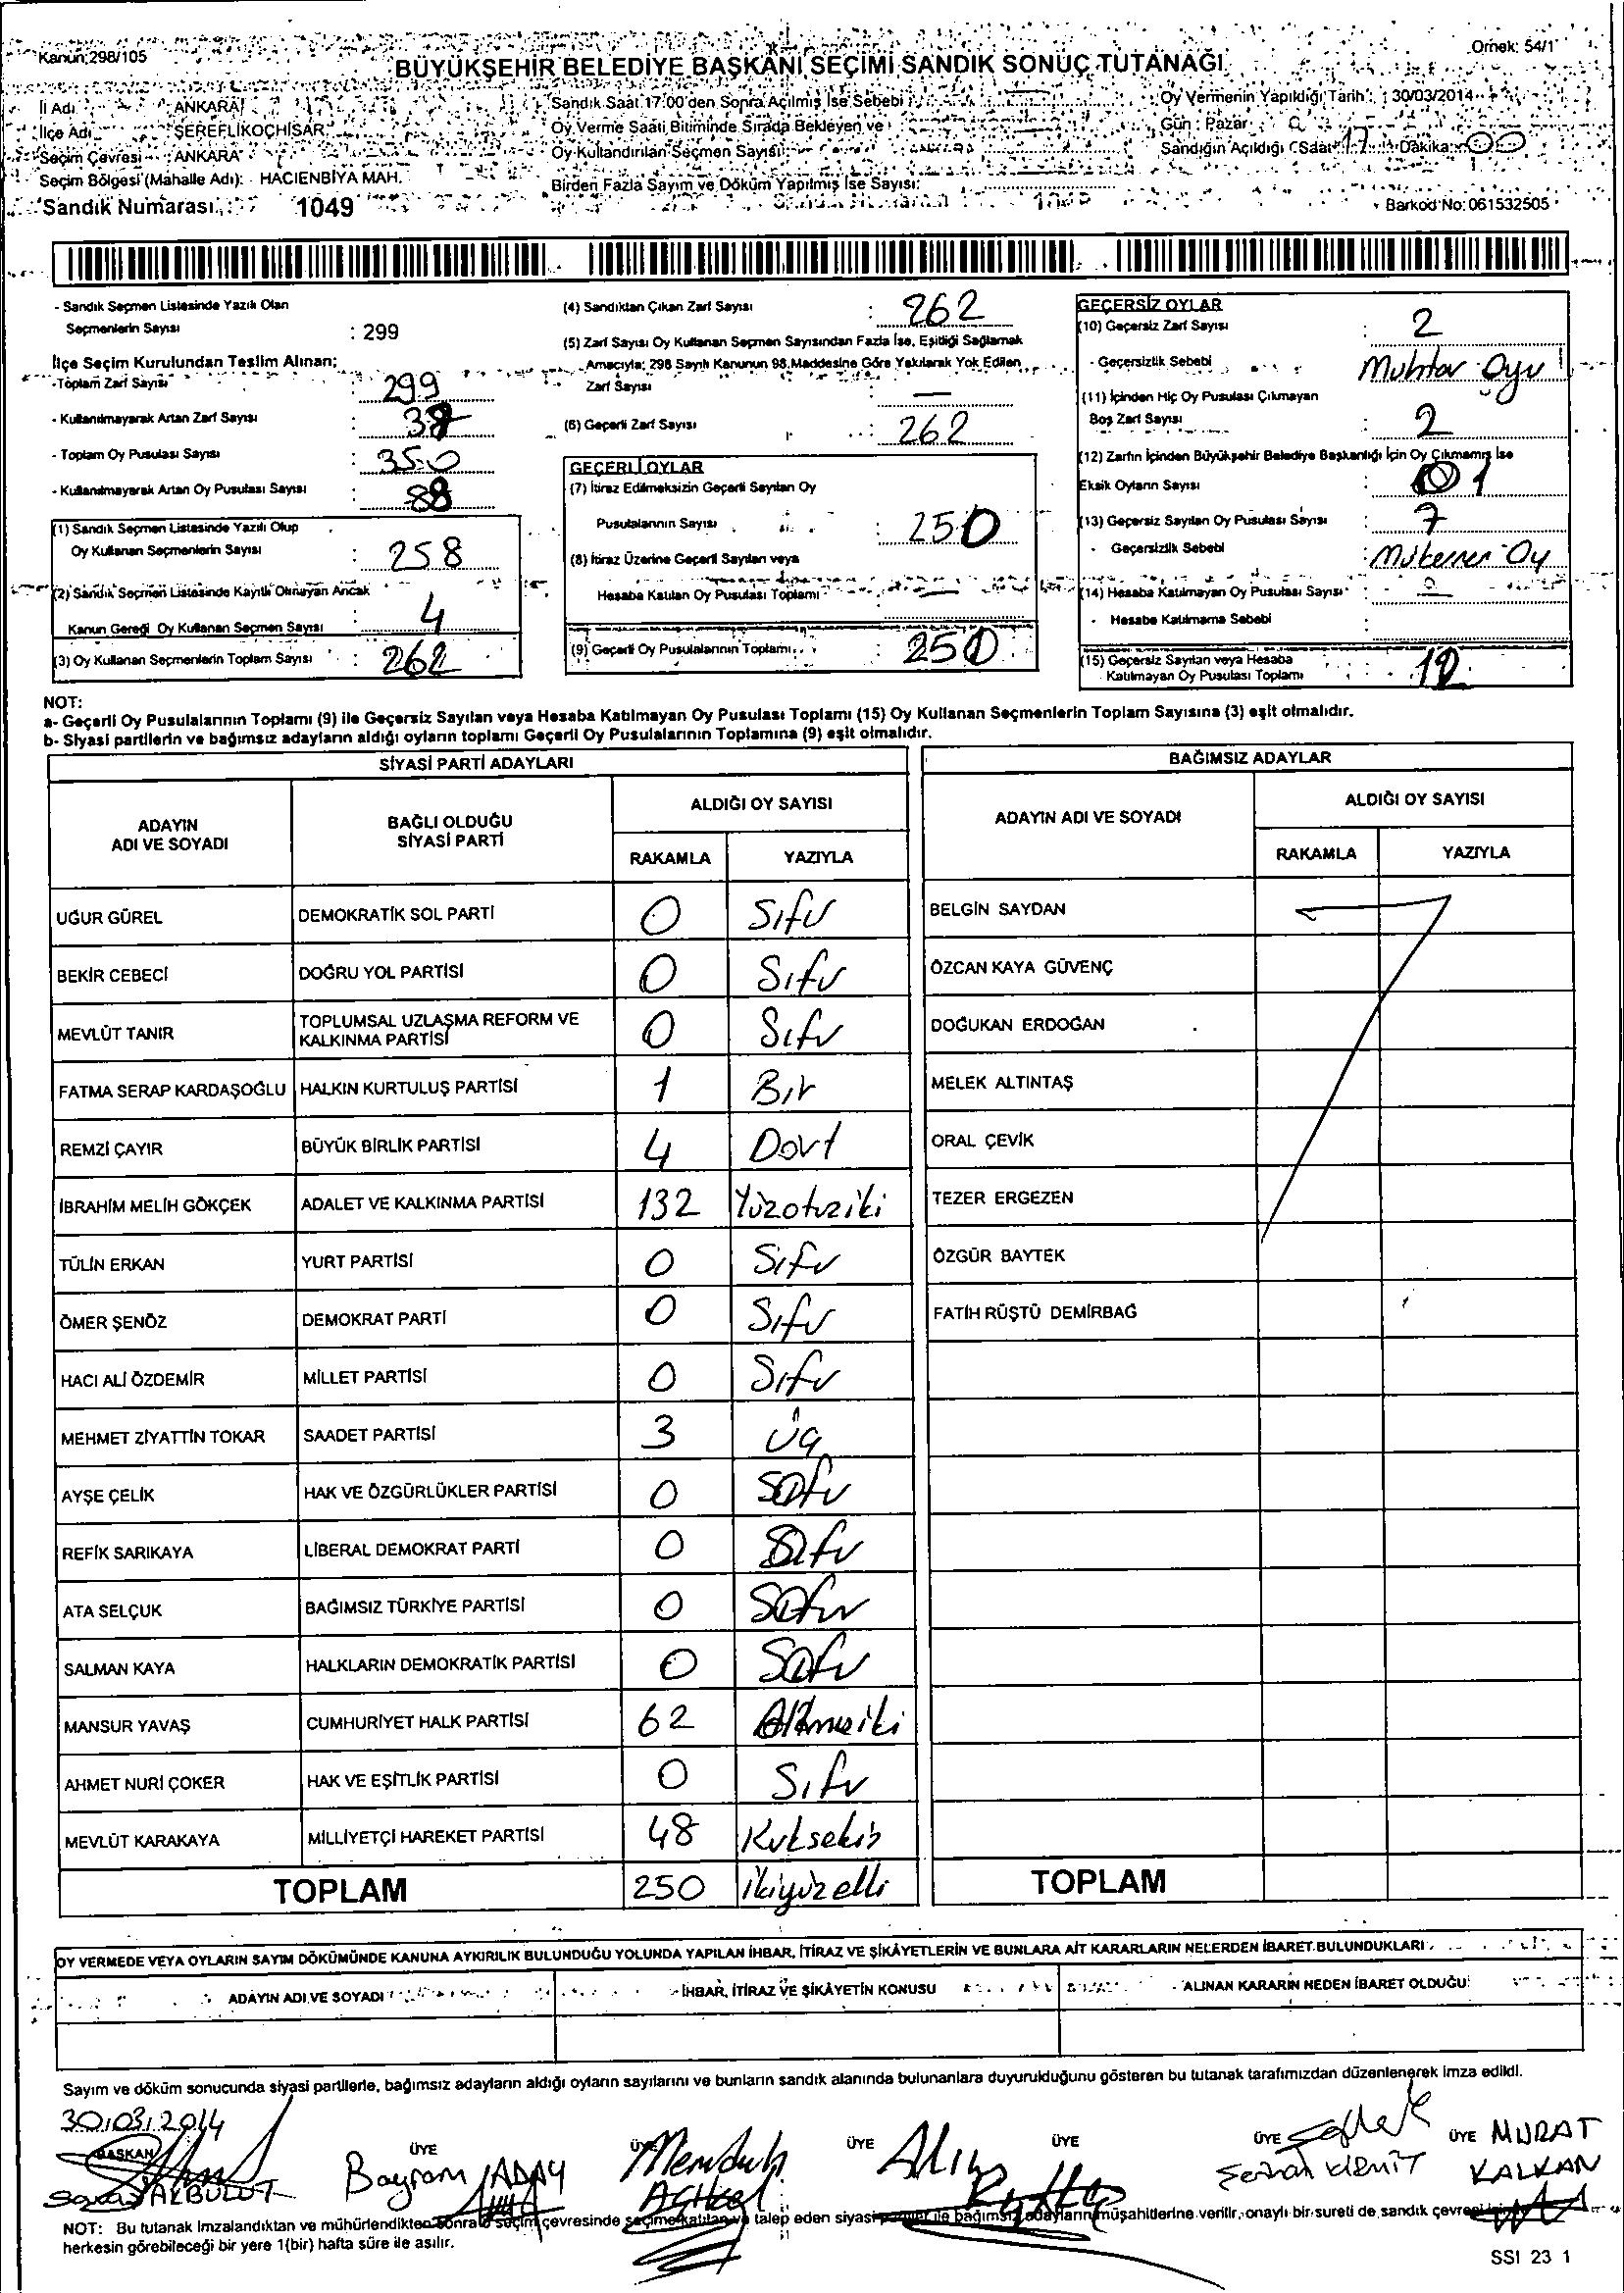 Kanun:298/105
Örnek: 54/1
BÜYÜKŞEHİR BELEDİYE BAŞKANI SEÇİMİ SANDIK SONUÇ TUTANAĞI
İl Adı : ANKARA
İlçe Adı : ŞEREFLİKOÇHİSAR
Seçim Çevresi : ANKARA
Seçim Bölgesi (Mahalle Adı): HACIENBİYA MAH.
Sandık Numarası : 1049
Sandık Saat 17:00'den Sonra Açılmış İse Sebebi :
Oy Verme Saati Bitiminde Sırada Bekleyen ve
Oy Kullandırılan Seçmen Sayısı:
Birden Fazla Sayım ve Döküm Yapılmış İse Sayısı:
Oy Vermenin Yapıldığı Tarih : 30/03/2014
Gün : Pazar
Sandığın Açıldığı (Saat: 17 Dakika: 00
Barkod No: 061532505
- Sandık Seçmen Listesinde Yazılı Olan
Seçmenlerin Sayısı : 299
İlçe Seçim Kurulundan Teslim Alınan:
- Toplam Zarf Sayısı : 299
- Kullanılmayarak Artan Zarf Sayısı :
- Toplam Oy Pusulası Sayısı : 350
- Kullanılmayarak Artan Oy Pusulası Sayısı : 88
(1) Sandık Seçmen Listesinde Yazılı Olup
Oy Kullanan Seçmenlerin Sayısı : 258
(2) Sandık Seçmen Listesinde Kayıtlı Olmayan Ancak
Kanun Gereği Oy Kullanan Seçmen Sayısı : 4
(3) Oy Kullanan Seçmenlerin Toplam Sayısı : 262
(4) Sandıktan Çıkan Zarf Sayısı : 262
(5) Zarf Sayısı Oy Kullanan Seçmen Sayısından Fazla İse, Eşitliği Sağlamak
Amacıyla; 298 Sayılı Kanunun 98.Maddesine Göre Yakılarak Yok Edilen
Zarf Sayısı : —
(6) Geçerli Zarf Sayısı : 262
GEÇERLİ OYLAR
(7) İtiraz Edilmeksizin Geçerli Sayılan Oy
Pusulalarının Sayısı : 250
(8) İtiraz Üzerine Geçerli Sayılan veya
Hesaba Katılan Oy Pusulası Toplamı : —
(9) Geçerli Oy Pusulalarının Toplamı : 250
GEÇERSİZ OYLAR
(10) Geçersiz Zarf Sayısı : 2
- Geçersizlik Sebebi : Muhtar Oyu
(11) İçinden Hiç Oy Pusulası Çıkmayan
Boş Zarf Sayısı : 2
(12) Zarfın İçinden Büyükşehir Belediye Başkanlığı İçin Oy Çıkmamış İse
Eksik Oyların Sayısı : 1
(13) Geçersiz Sayılan Oy Pusulası Sayısı : 7
- Geçersizlik Sebebi : Mükerrer Oy
(14) Hesaba Katılmayan Oy Pusulası Sayısı :
- Hesaba Katılmama Sebebi :
(15) Geçersiz Sayılan veya Hesaba
Katılmayan Oy Pusulası Toplamı : 12
NOT:
a- Geçerli Oy Pusulalarının Toplamı (9) ile Geçersiz Sayılan veya Hesaba Katılmayan Oy Pusulası Toplamı (15) Oy Kullanan Seçmenlerin Toplam Sayısına (3) eşit olmalıdır.
b- Siyasi partilerin ve bağımsız adayların aldığı oyların toplamı Geçerli Oy Pusulalarının Toplamına (9) eşit olmalıdır.
SİYASİ PARTİ ADAYLARI
ADAYIN ADI VE SOYADI BAĞLI OLDUĞU SİYASİ PARTİ ALDIĞI OY SAYISI
RAKAMLA YAZIYLA
UĞUR GÜREL DEMOKRATİK SOL PARTİ 0 Sıfır
BEKİR CEBECİ DOĞRU YOL PARTİSİ 0 Sıfır
MEVLÜT TANIR TOPLUMSAL UZLAŞMA REFORM VE KALKINMA PARTİSİ 0 Sıfır
FATMA SERAP KARDAŞOĞLU HALKIN KURTULUŞ PARTİSİ 1 Bir
REMZİ ÇAYIR BÜYÜK BİRLİK PARTİSİ 4 Dört
İBRAHİM MELİH GÖKÇEK ADALET VE KALKINMA PARTİSİ 132 Yüzotuziki
TÜLİN ERKAN YURT PARTİSİ 0 Sıfır
ÖMER ŞENÖZ DEMOKRAT PARTİ 0 Sıfır
HACI ALİ ÖZDEMİR MİLLET PARTİSİ 0 Sıfır
MEHMET ZİYATTİN TOKAR SAADET PARTİSİ 3 Üç
AYŞE ÇELİK HAK VE ÖZGÜRLÜKLER PARTİSİ 0 Sıfır
REFİK SARIKAYA LİBERAL DEMOKRAT PARTİ 0 Sıfır
ATA SELÇUK BAĞIMSIZ TÜRKİYE PARTİSİ 0 Sıfır
SALMAN KAYA HALKLARIN DEMOKRATİK PARTİSİ 0 Sıfır
MANSUR YAVAŞ CUMHURİYET HALK PARTİSİ 62 Altmışiki
AHMET NURİ ÇOKER HAK VE EŞİTLİK PARTİSİ 0 Sıfır
MEVLÜT KARAKAYA MİLLİYETÇİ HAREKET PARTİSİ 48 Kırksekiz
TOPLAM 250 İkiyüzelli
BAĞIMSIZ ADAYLAR
ADAYIN ADI VE SOYADI ALDIĞI OY SAYISI
RAKAMLA YAZIYLA
BELGİN SAYDAN
ÖZCAN KAYA GÜVENÇ
DOĞUKAN ERDOĞAN
MELEK ALTINTAŞ
ORAL ÇEVİK
TEZER ERGEZEN
ÖZGÜR BAYTEK
FATİH RÜŞTÜ DEMİRBAĞ
TOPLAM
OY VERMEDE VEYA OYLARIN SAYIM DÖKÜMÜNDE KANUNA AYKIRILIK BULUNDUĞU YOLUNDA YAPILAN İHBAR, İTİRAZ VE ŞİKÂYETLERİN VE BUNLARA AİT KARARLARIN NELERDEN İBARET BULUNDUKLARI
ADAYIN ADI VE SOYADI İHBAR, İTİRAZ VE ŞİKÂYETİN KONUSU ALINAN KARARIN NEDEN İBARET OLDUĞU
Sayım ve döküm sonucunda siyasi partilerle, bağımsız adayların aldığı oyların sayılarını ve bunların sandık alanında bulunanlara duyurulduğunu gösteren bu tutanak tarafımızdan düzenlenerek imza edildi.
30.03.2014
BAŞKAN ÜYE ÜYE ÜYE ÜYE ÜYE ÜYE MURAT
AKBULUT Bayram ADAY Memduh Alim Serhat KALKAN
NOT: Bu tutanak imzalandıktan ve mühürlendikten sonra o seçim çevresinde seçime katılan ve talep eden siyasi partiler ile bağımsız adayların müşahitlerine verilir, onaylı bir sureti de sandık çevresi
herkesin görebileceği bir yere 1(bir) hafta süre ile asılır.
SSI 23 1